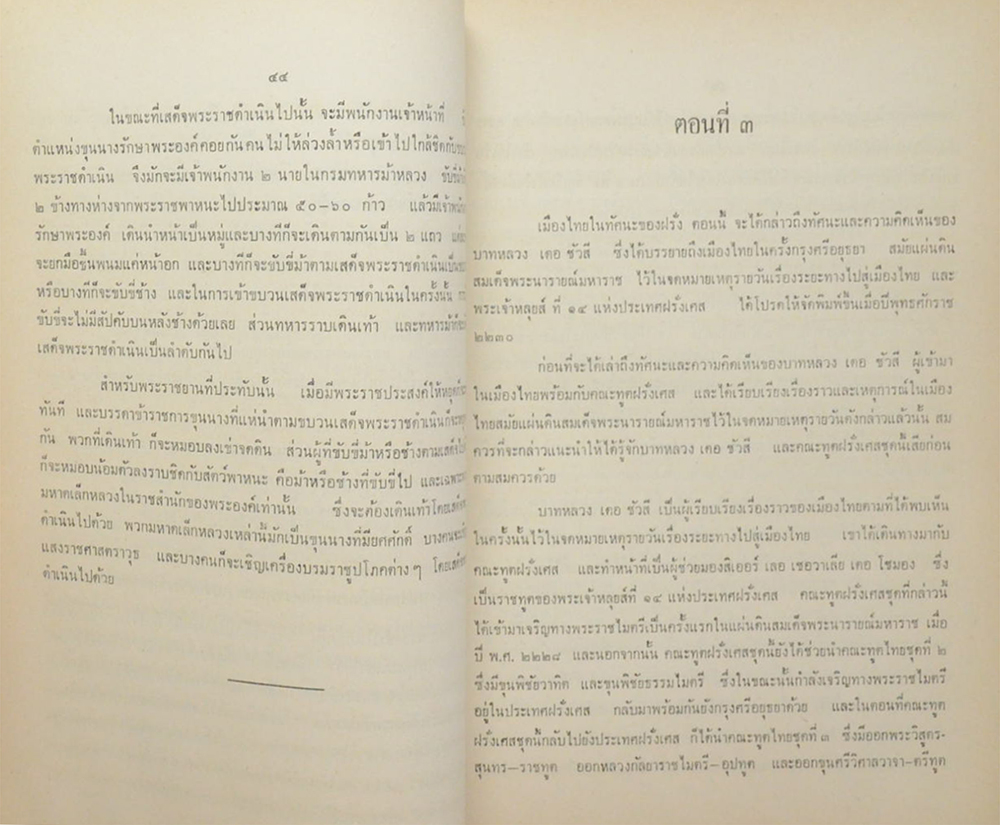 ๔๔
ในขณะที่เสด็จพระราชดำเนินไปนั้น จะมีพนักงานเจ้าหน้าที่
ตำแหน่งขุนนางรักษาพระองค์คอยกันคน ไม่ให้ล่วงล้ำหรือเข้าไปใกล้ชิดกับ
พระราชดำเนิน จึงมักจะมีเจ้าพนักงาน ๒ นายในกรมทหารม้าหลวง
๒ ข้างทางห่างจากพระราชพาหนะไปประมาณ ๕๐–๖๐ ก้าว แล้วมีเจ้า
รักษาพระองค์ เดินนำหน้าเป็นหมู่และบางทีก็จะเดินตามกันเป็น ๒ แถว
จะยกมือขึ้นพนมแค่หน้าอก และบางทีก็จะขับขี่ม้าตามเสด็จพระราชดำเนินเป็น
หรือบางทีก็จะขับขี่ช้าง และในการเข้าขบวนเสด็จพระราชดำเนินในครั้งนั้น
ขับขี่จะไม่มีสัปคับบนหลังช้างด้วยเลย ส่วนทหารราบเดินเท้า และทหารม้า
เสด็จพระราชดำเนินเป็นลำดับกันไป
สำหรับพระราชยานที่ประทับนั้น เมื่อมีพระราชประสงค์ให้หยุด
ทันที และบรรดาข้าราชการขุนนางที่แห่นำตามขบวนเสด็จพระราชดำเนินก็จะ
กัน พวกที่เดินเท้า ก็จะหมอบลงเข่าจดดิน ส่วนผู้ที่ขับขี่ม้าหรือช้างตามเสด็จ
ก็จะหมอบน้อมตัวลงราบชิดกับสัตว์พาหนะ คือม้าหรือช้างที่ขับขี่ไป และเฉพาะ
มหาดเล็กหลวงในราชสำนักของพระองค์เท่านั้น ซึ่งจะต้องเดินเท้าโดยเสด็จ
ดำเนินไปด้วย พวกมหาดเล็กหลวงเหล่านี้มักเป็นขุนนางที่มียศศักดิ์ บางคน
แสงราชศาสตราวุธ และบางคนก็จะเชิญเครื่องบรมราชูปโภคต่าง ๆ โดยเสด็จ
ดำเนินไปด้วย
ตอนที่ ๓
เมืองไทยในทัศนะของฝรั่ง ตอนนี้ จะได้กล่าวถึงทัศนะและความคิดเห็นของ
บาทหลวง เดอ ชัวสี ซึ่งได้บรรยายถึงเมืองไทยในครั้งกรุงศรีอยุธยา สมัยแผ่นดิน
สมเด็จพระนารายณ์มหาราช ไว้ในจดหมายเหตุรายวันเรื่องระยะทางไปสู่เมืองไทย และ
พระเจ้าหลุยส์ ที่ ๑๔ แห่งประเทศฝรั่งเศส ได้โปรดให้จัดพิมพ์ขึ้นเมื่อปีพุทธศักราช
๒๒๓๐
ก่อนที่จะได้เล่าถึงทัศนะและความคิดเห็นของบาทหลวง เดอ ชัวสี ผู้เข้ามา
ในเมืองไทยพร้อมกับคณะทูตฝรั่งเศส และได้เรียบเรียงเรื่องราวและเหตุการณ์ในเมือง
ไทยสมัยแผ่นดินสมเด็จพระนารายณ์มหาราชไว้ในจดหมายเหตุรายวันดังกล่าวแล้วนั้น สม
ควรที่จะกล่าวแนะนำให้ได้รู้จักบาทหลวง เดอ ชัวสี และคณะทูตฝรั่งเศสชุดนี้เสียก่อน
ตามสมควรด้วย
บาทหลวง เดอ ชัวสี เป็นผู้เรียบเรียงเรื่องราวของเมืองไทยตามที่ได้พบเห็น
ในครั้งนั้นไว้ในจดหมายเหตุรายวันเรื่องระยะทางไปสู่เมืองไทย เขาได้เดินทางมากับ
คณะทูตฝรั่งเศส และทำหน้าที่เป็นผู้ช่วยมองสิเออร์ เลอ เชอวาเลีย เดอ โชมอง ซึ่ง
เป็นราชทูตของพระเจ้าหลุยส์ที่ ๑๔ แห่งประเทศฝรั่งเศส คณะทูตฝรั่งเศสชุดที่กล่าวนี้
ได้เข้ามาเจริญทางพระราชไมตรีเป็นครั้งแรกในแผ่นดินสมเด็จพระนารายณ์มหาราช เมื่อ
ปี พ.ศ. ๒๒๒๘ และนอกจากนั้น คณะทูตฝรั่งเศสชุดนี้ยังได้ช่วยนำคณะทูตไทยชุดที่ ๒
ซึ่งมีขุนพิชัยวาทิต และขุนพิชัยธรรมไมตรี ซึ่งในขณะนั้นกำลังเจริญทางพระราชไมตรี
อยู่ในประเทศฝรั่งเศส กลับมาพร้อมกันยังกรุงศรีอยุธยาด้วย และในตอนที่คณะทูต
ฝรั่งเศสชุดนี้กลับไปยังประเทศฝรั่งเศส ก็ได้นำคณะทูตไทยชุดที่ ๓ ซึ่งมีออกพระวิสูตร-
สุนทร–ราชทูต ออกหลวงกัลยาราชไมตรี–อุปทูต และออกขุนศรีวิศาลวาจา–ตรีทูต